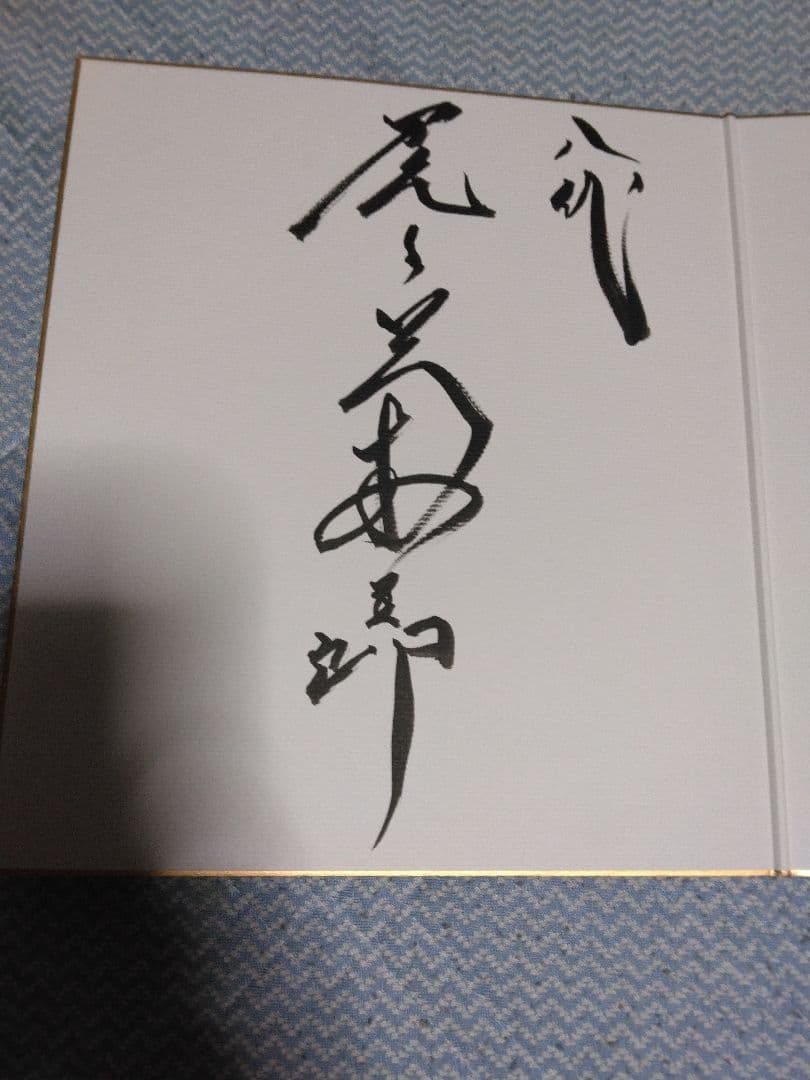 八代
尾上菊五郎